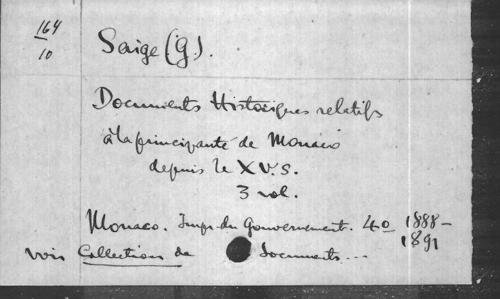 164
10
Saige (G).
Documents Historiques relatifs
à la principauté de Monaco
depuis le XV.s.
3 vol.
Monaco. Impr. du Gouvernement. 4o 1888-
1891
voir Collection de documents...